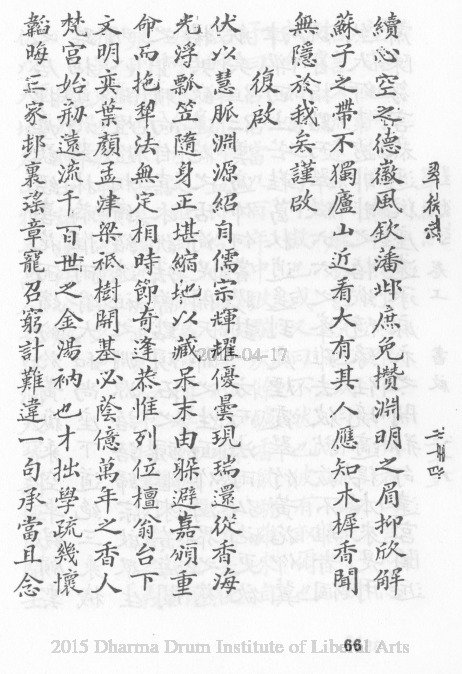 續心空之德徽風欽潘邺庶免攢淵明之眉抑欣觧
蘇子之帶不獨廬山近看大有其人應知木樨香聞
無隱於我矣謹啟
復啟
伏以慧脈淵源紹自儒宗輝耀優曇現瑞還從香海
光浮瓢笠隨身正堪縮地以藏呆未由躲避嘉頒重
命而抱犁法無定相時節奇逢恭惟列位檀翁台下
文明奕葉顏孟津梁祇樹開基必蔭億萬年之香人
梵宮始剏遠流千百世之金湯衲也才拙學疏幾壞
韜晦三家邨裏瑤章寵召窮計難違一句承當且念
66
2015-04-17
2015 Dharma Drum Institute of Liberal Arts